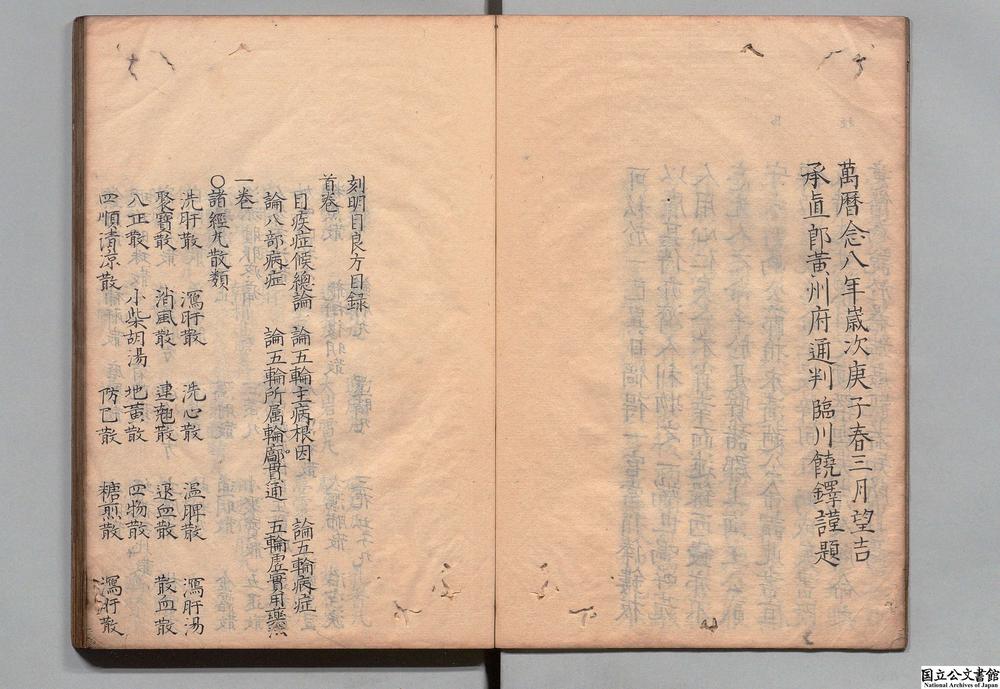 萬曆念八年歲次庚子春三月望吉
承直郎黃州府通判臨川饒鐸謹題
刻明目良方目録
首卷
目疾症候總論　論五輪主病根因　論五輪病症
論八部病症　論五輪所属輪廓貫通　五輪虛實用藥法
一卷
○諸經丸散類
洗肝散　瀉肝散　洗心散　温脾散　瀉肝湯
聚寶散　消風散　連翹散　退血散　散血散
八正散　小柴胡湯　地黄散　四物散
四順清凉散　防己散　糖煎散　瀉肝散
国立公文書館
National Archives of Japan